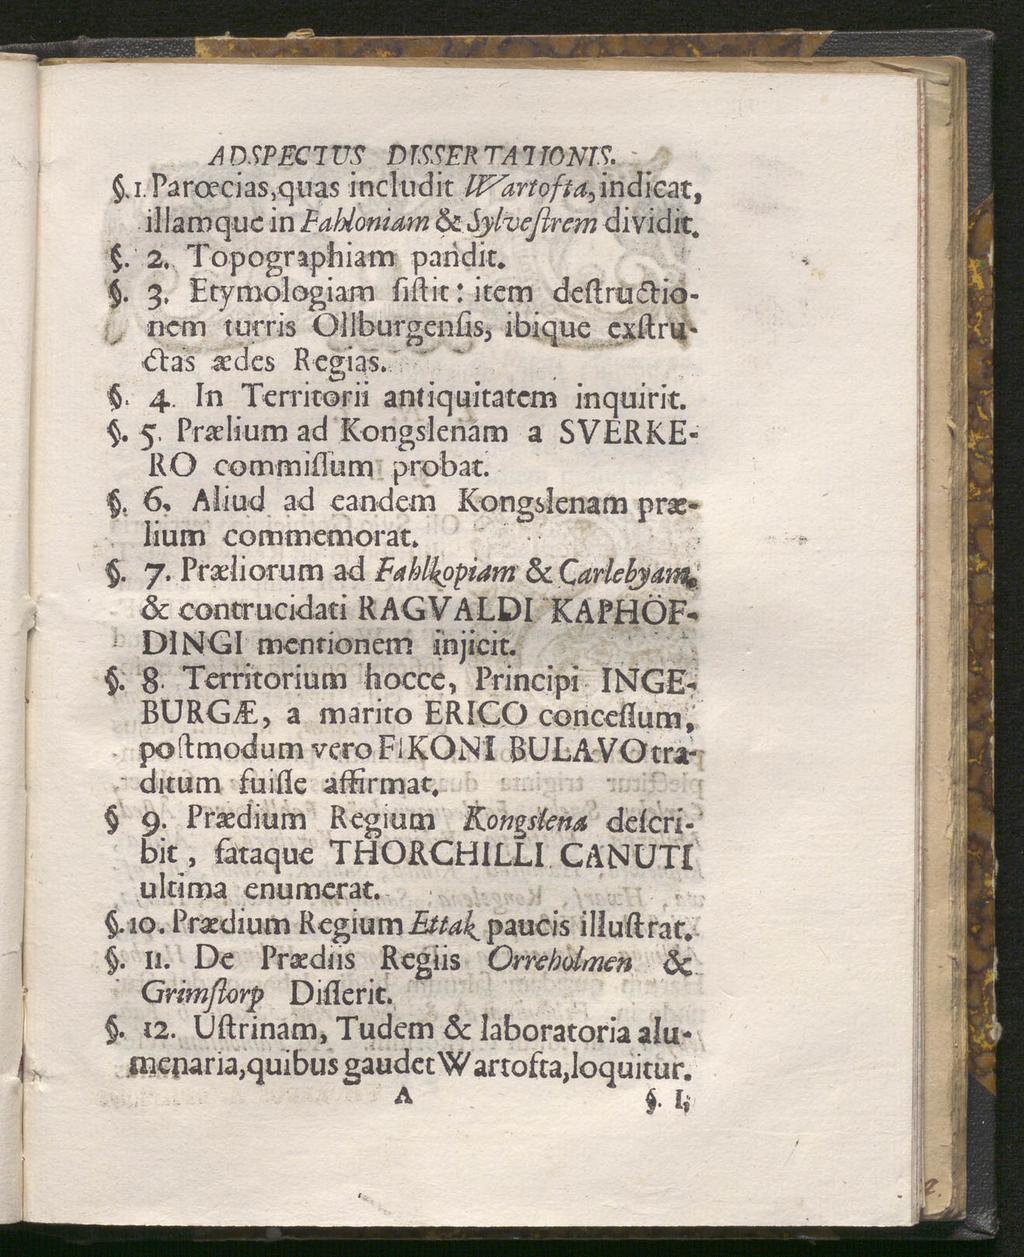 ADSPECTUS DISSERTATIONIS.
§. 1. Parœcias, quas includit Wartofta, indicat,
illamque in Fahloniam & Sylveſtrem dividit.
§. 2. Topographiam pandit.
§. 3. Etymologiam ſiſtit: item deſtructio-
nem turris Ollburgenſis, ibique exſtru-
ctas ædes Regias.
§. 4. In Territorii antiquitatem inquirit.
§. 5. Prælium ad Kongslenam a SVERKE-
RO commiſſum probat.
§. 6. Aliud ad eandem Kongslenam præ-
lium commemorat.
§. 7. Præliorum ad Fahlkopiam & Carlebyam,
& contrucidati RAGVALDI KAPHÖF-
DINGI mentionem injicit.
§. 8. Territorium hocce, Principi INGE-
BURGÆ, a marito ERICO conceſſum,
poſtmodum vero FIKONI BULAVO tra-
ditum fuiſſe affirmat.
§ 9. Prædium Regium Kongslena deſcri-
bit, fataque THORCHILLI CANUTI
ultima enumerat.
§. 10. Prædium Regium Ettak paucis illuſtrat.
§. 11. De Prædiis Regiis Orreholmen &
Grimſtorp Diſſerit.
§. 12. Uſtrinam, Tudem & laboratoria alu-
menaria, quibus gaudet Wartofta, loquitur.
A §. I,
2.